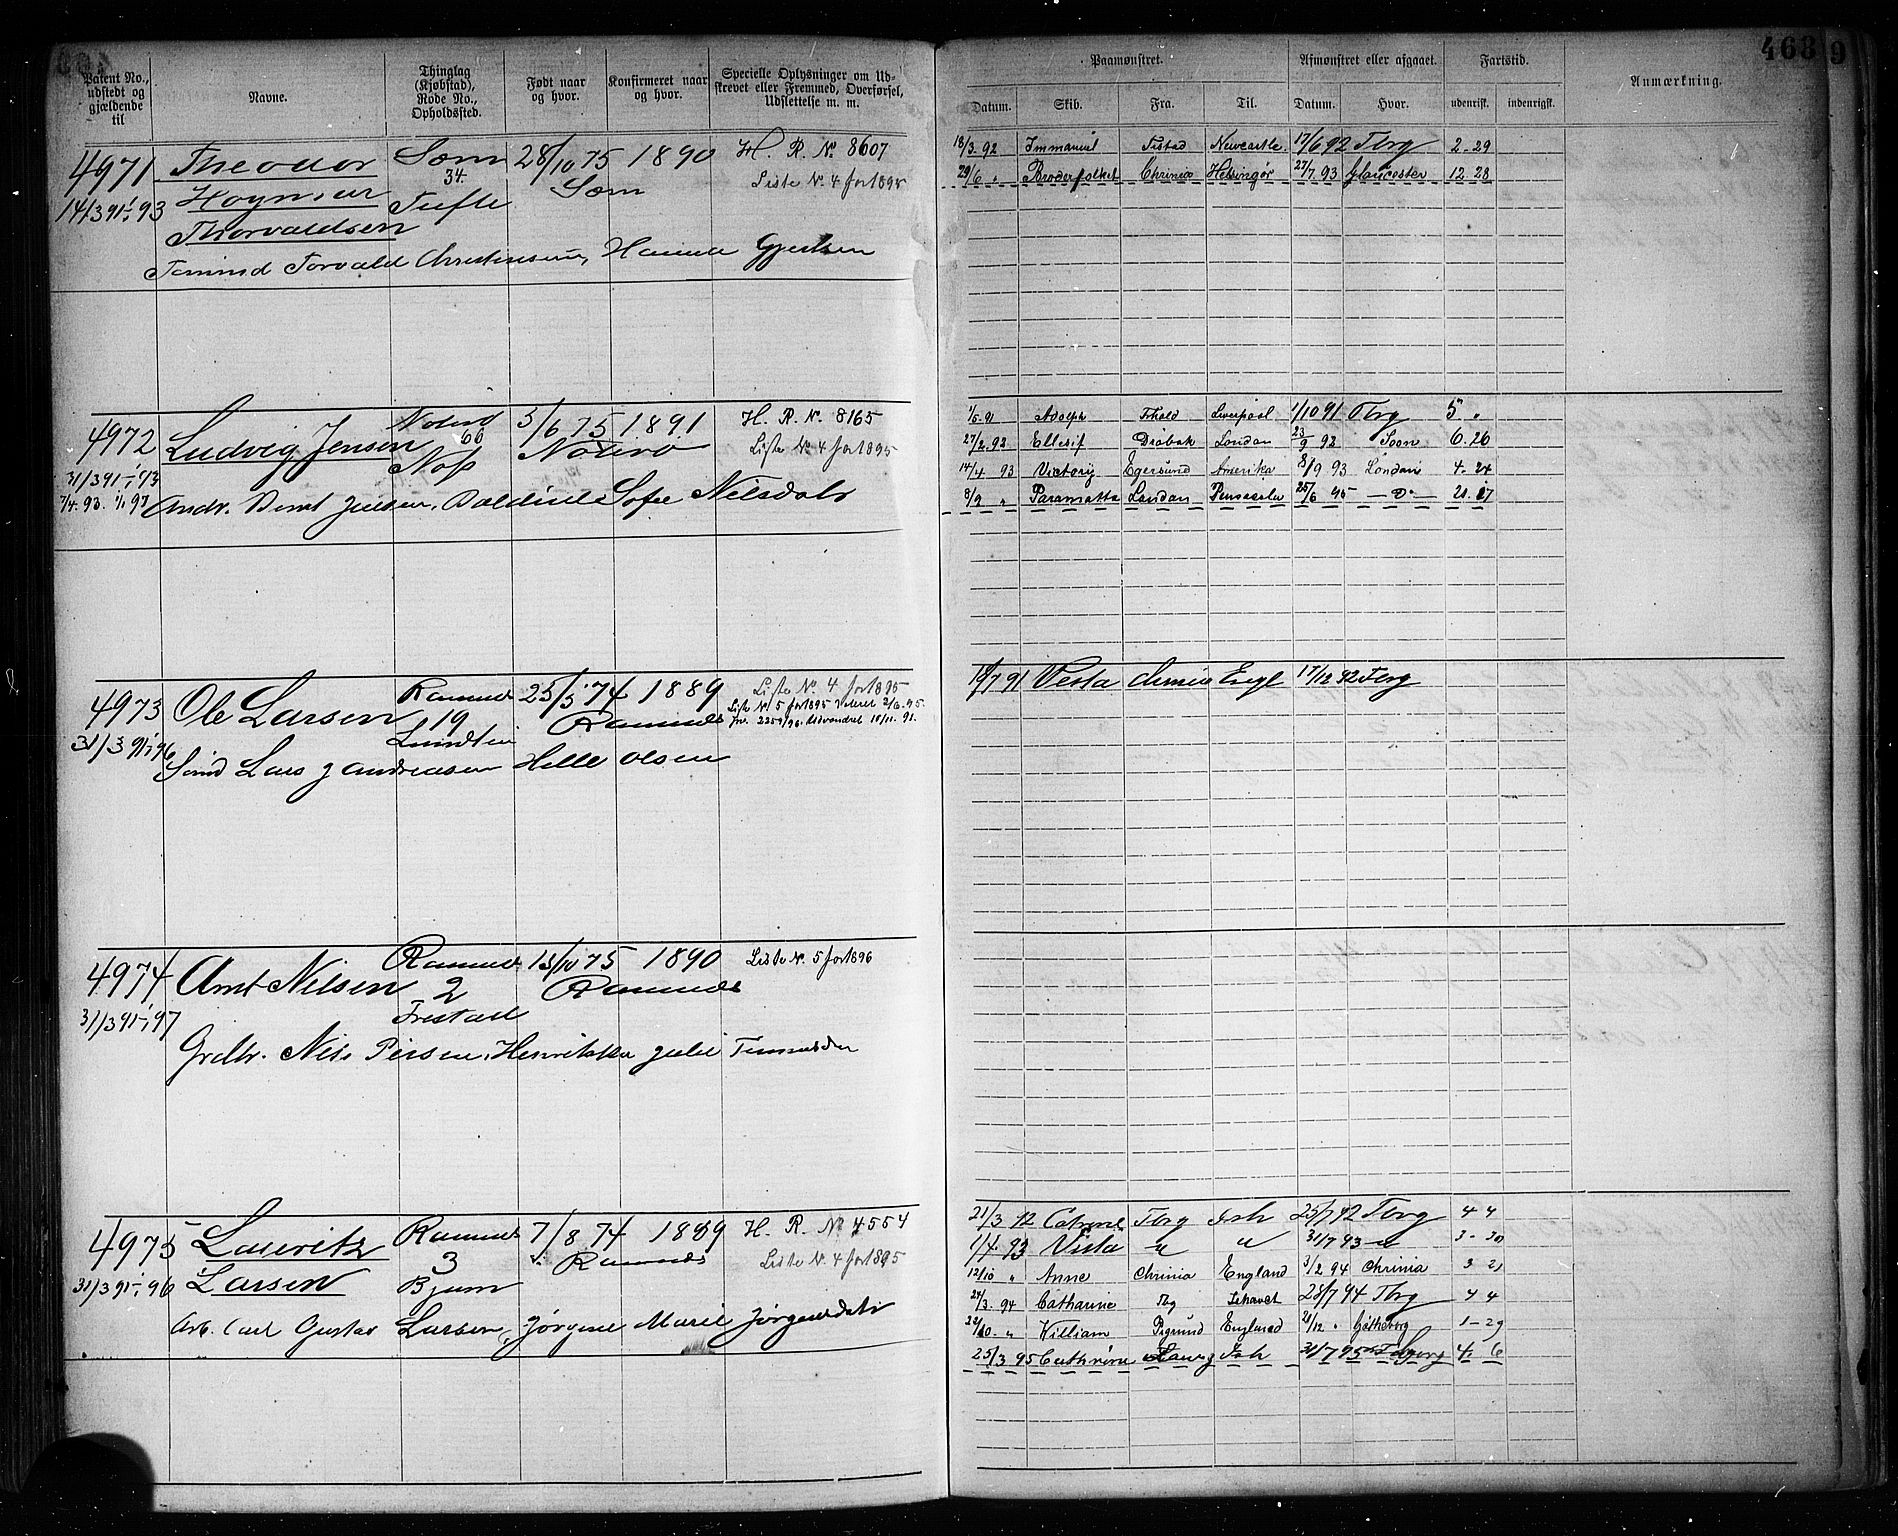 Patent No., udstedt og gjældende til
Navne.
Thinglag (Kjøbstad), Rode No., Opholdssted.
Født naar og hvor.
Konfirmeret naar og hvor.
Specielle Oplysninger om Udskrevet eller Fremmed, Overførsel, Udslettelse m. m.
Paamønstret.
Afmønstret eller afgaaet.
Fartstid.
Anmærkning.
468
9
Datum.
Skib.
Fra.
Til.
Datum.
Hvor.
udenrisk.
indenrigsk.
4971 Theodor Sæm 28/10 75 1890 H. R. No. 8607
34. Sæm Liste No. 4 for 1895
14/3 91 - 1/1 93 Tufte
Thorvaldsen
Tømmd Torvald Christensen, Gjertsen
18/3. 92 Immanuel Tistad Newcastle 17/6 92 Tbrg 2 - 29
29/6 " Broderfolket Chrinia Helsingør 27/7. 93 Gloucester 12 28
4972 Ludvig Jensen Nøterø 3/6 75 1891 H. R. No. 8165
66 Nøterø Liste No. 4 for 1895
31/3 91 - 1/1 93
7/4. 93. 1/1 97 Andr. Bernt Jensen, Boldine Sofie Nilsdatr
1/5. 91 Adolph Fhald Liverpool 1/10 91 Tbrg 5 "
27/2. 92 Ellesif Drøbak London 23/9 92 Soon 6. 26
14/4 93 Victoria Egersund Amerika 8/9 93 London 4. 24
8/9 " Paramatta London Pensacola 25/6 95 — Do — 21. 17
4973 Ole Larsen Ramnæs 25/3 74 1889 Liste No. 4 for 1895
19 Ramnæs Liste No. 5 for 1895 2/6. 95.
31/3 91 - 1/1 96 Jnr. 2259/96. Udvandret 10/11. 91.
Lars J Andreasen Helle Olsen
19/7 91 Vesta Chrinia Engl 17/12 92 Tbrg
4974 Arnt Nilsen Ramnæs 13/10 75 1890 Liste No. 5 for 1896
2 Ramnæs
31/3 91 - 1/1 97 Frestad
Grdbr. Nils Persen, Henrikka Julie
4975 Lauritz Ramnæs 7/8 74 1889 H. R. No. 4554
3 Ramnæs Liste No. 4 for 1895
31/3 91 - 1/1 96 Larsen Bjum
Arb. Carl Gustav Larsen, Jørgine Marie Jørgensdatr
21/3 92 Catrine Tbrg Ish 23/7 92 Tbrg 4 4
1/4. 93 Vesta " " 31/7 93 " 3 - 30
12/10 " Anne Chrinia England 3/2 94 Chrinia 3 21
24/3. 94 Catharine Tbg Ishavet 28/7 94 Tbrg 4 4
22/10. " William Psgrund England 21/12 " Gøtheborg 1 - 29
25/3 95 Cathrine Ish 31/7 95 Tbrg 4. 6